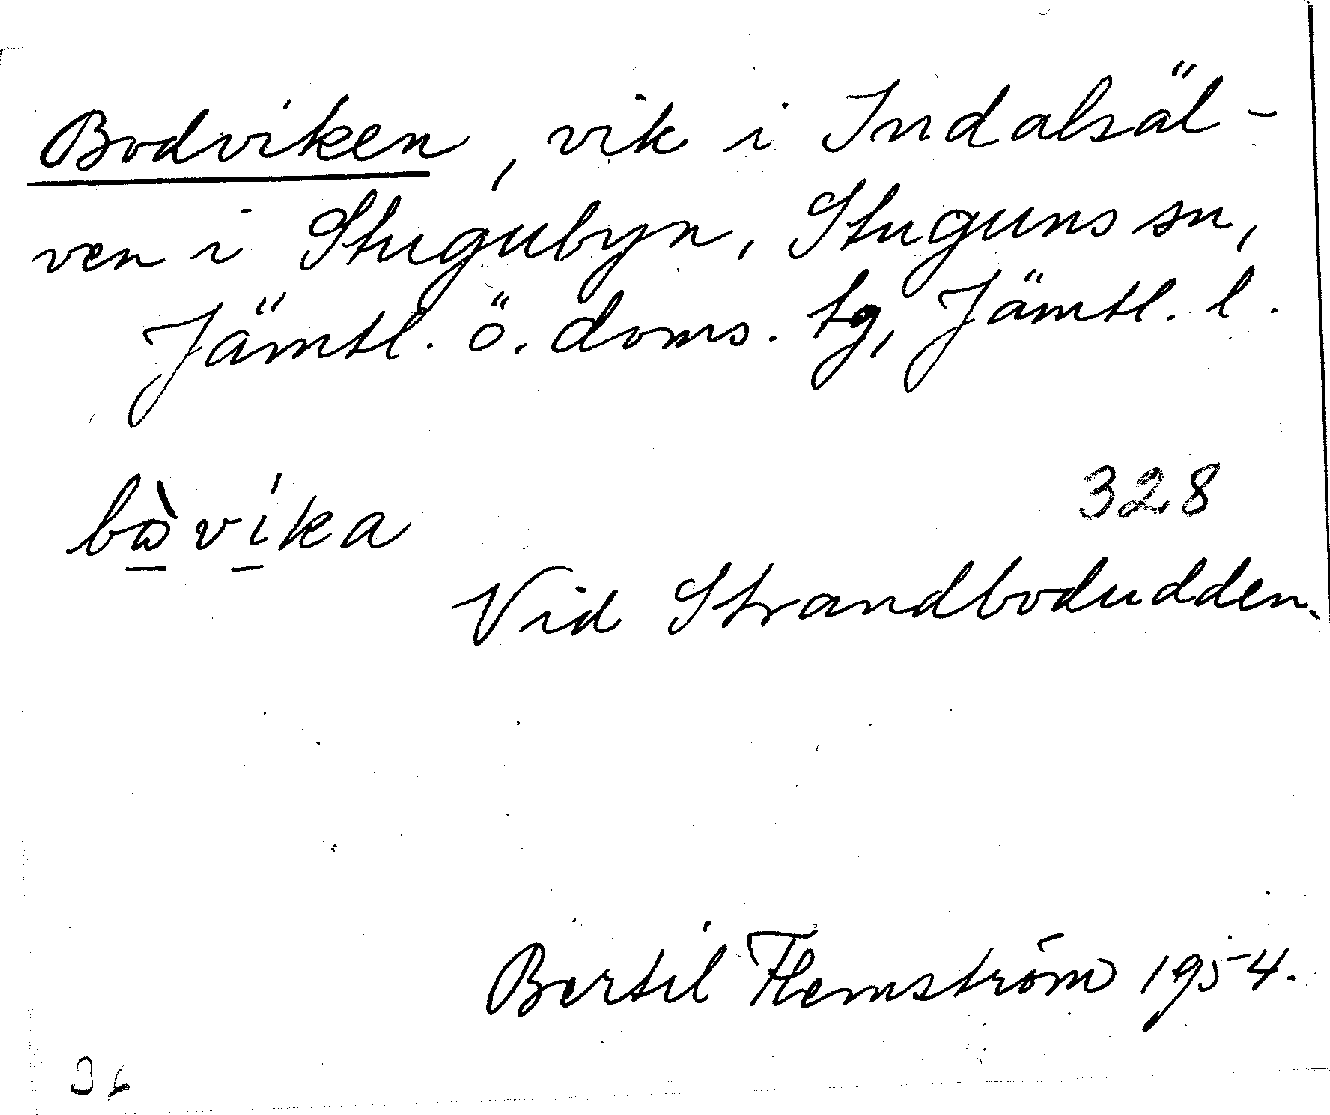 Bodviken, vik i Indalsäl-
ven i Stugubyn, Stuguns sn,
Jämtl. ö. doms. tg, Jämtl. l.
bòvíka
328
Vid Strandbodudden.
Bertil Flemström 1954.
36